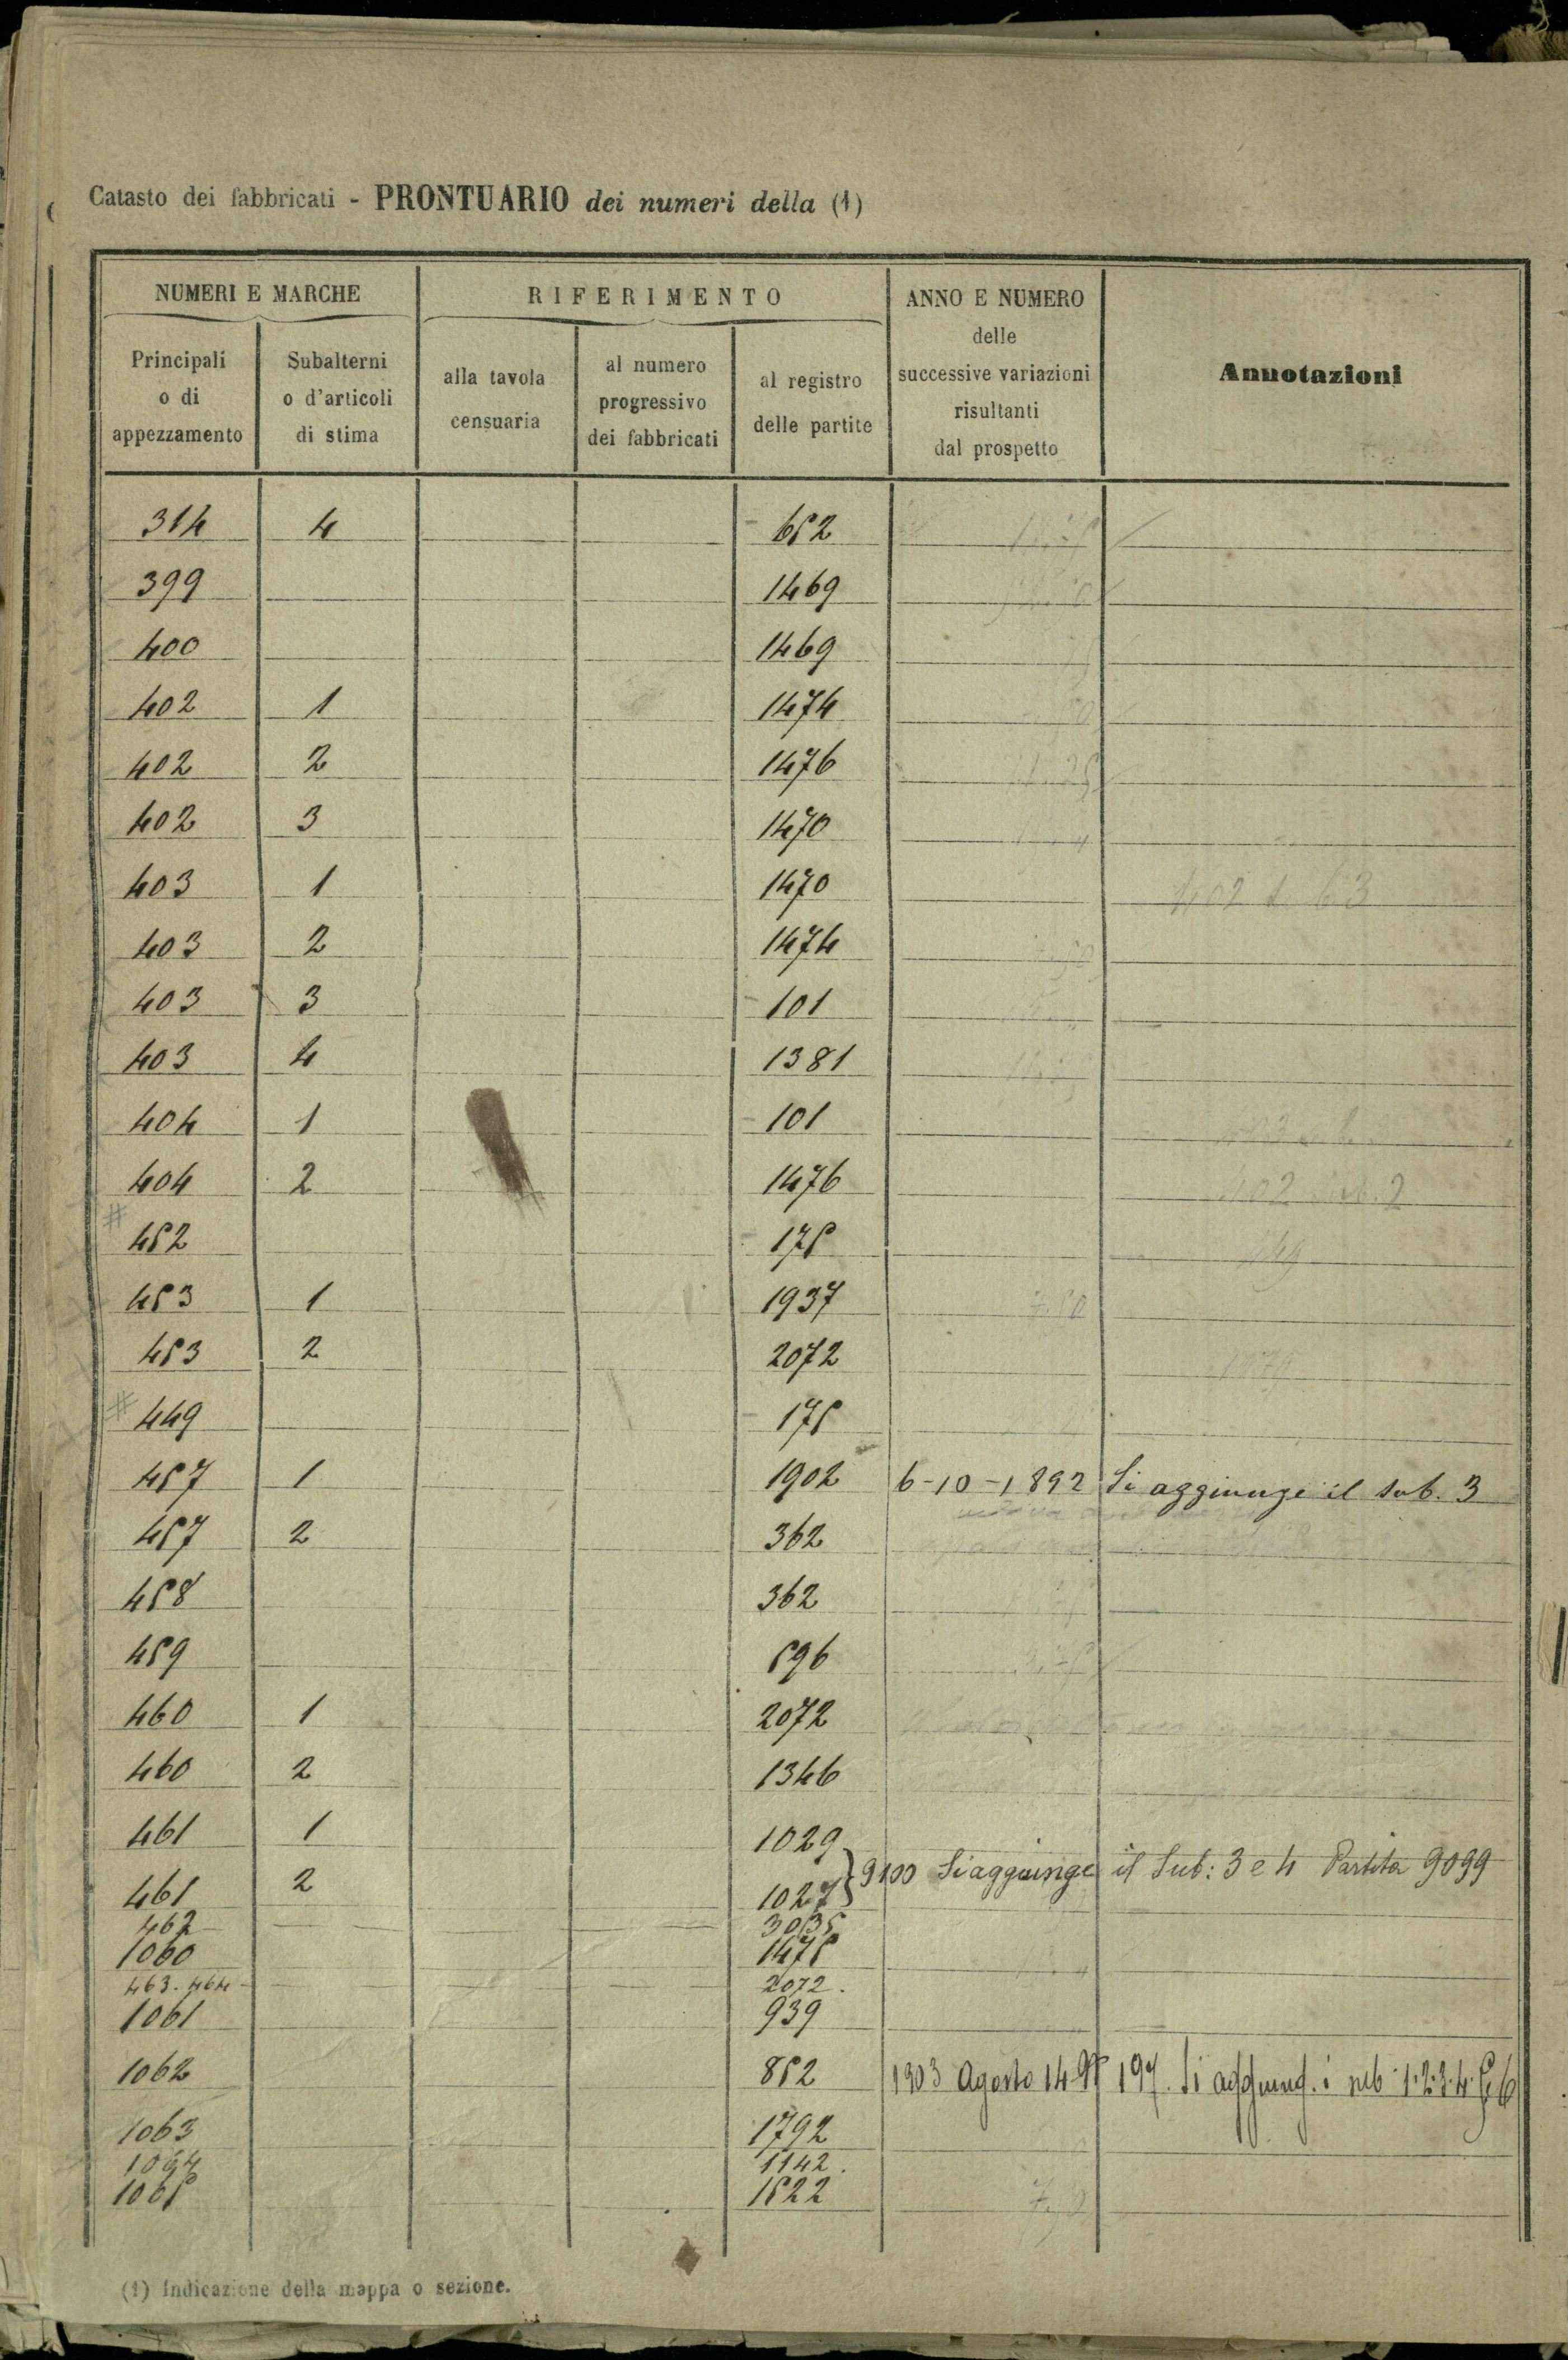 Catasto dei fabbricati - PRONTUARIO dei numeri della (1)
NUMERI E MARCHE
RIFERIMENTO
ANNO E NUMERO
delle
successive variazioni
risultanti
dal prospetto
Annotazioni
Principali
o di
appezzamento
Subalterni
o d'articoli
di stima
alla tavola
censuaria
al numero
progressivo
dei fabbricati
al registro
delle partite
314 4 652
399 1469
400 1469
402 1 1474
402 2 1476
402 3 1470
403 1 1470
403 2 1474
403 3 101
403 4 1381
404 1 101
404 2 1476 402 sub. 2
# 452 175
453 1 1937 7.50
453 2 2072
# 449 175
457 1 1902 6-10-1892 Si aggiunge il sub. 3
457 2 362
458 362
459 596
460 1 2072
460 2 1346
461 1 1029
} 9100 Si aggiunge il Sub: 3 e 4 Partita 9099
461 2 1027
462 3035
1060 1475
463. 464 2072.
1061 939
1062 852 1903 Agosto 14 N 197. Si aggiung. i sub 1.2.3.4.5.6
1063 1792
1064 1142.
1065 1522
(1) Indicazione della mappa o sezione.